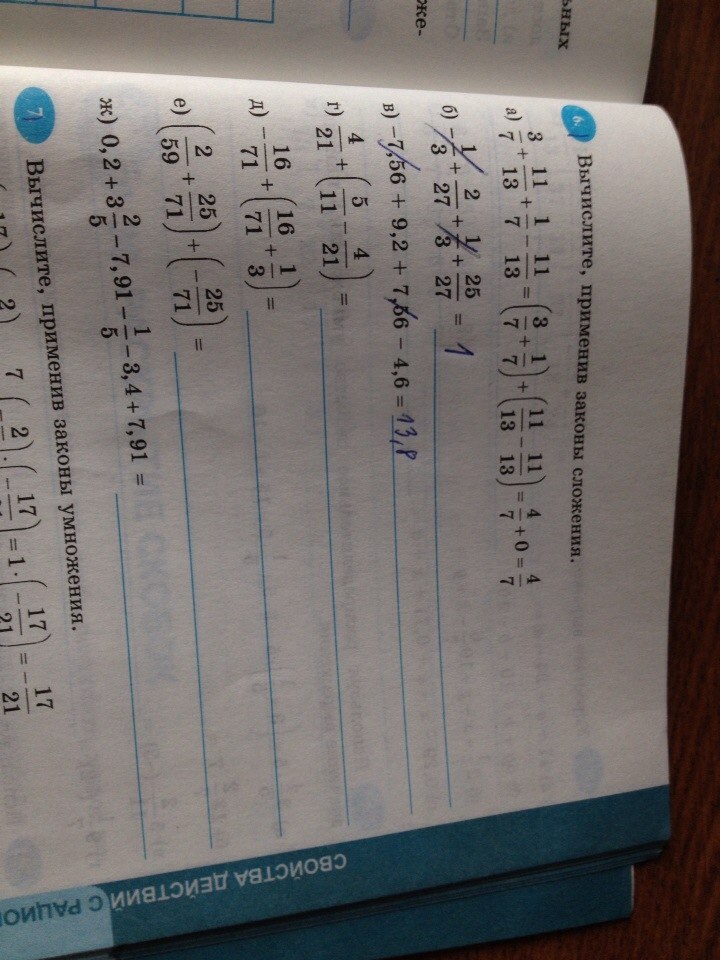 ьных
же-
6. Вычислите, применив законы сложения.
а) 3/7 + 11/13 + 1/7 − 11/13 = (3/7 + 1/7) + (11/13 − 11/13) = 4/7 + 0 = 4/7
б) −1/3 + 2/27 + 1/3 + 25/27 = 1
в) −7,56 + 9,2 + 7,56 − 4,6 = 13,8
г) 4/21 + (5/11 − 4/21) =
д) −16/71 + (16/71 + 1/3) =
е) (2/59 + 25/71) + (−25/71) =
ж) 0,2 + 3 2/5 − 7,91 − 1/5 − 3,4 + 7,91 =
7 Вычислите, применив законы умножения.
17 2 7 (− 2 ) · (− 17 ) = 1 · (− 17/21) = − 17/21
СВОЙСТВА ДЕЙСТВИЙ С РАЦИОН